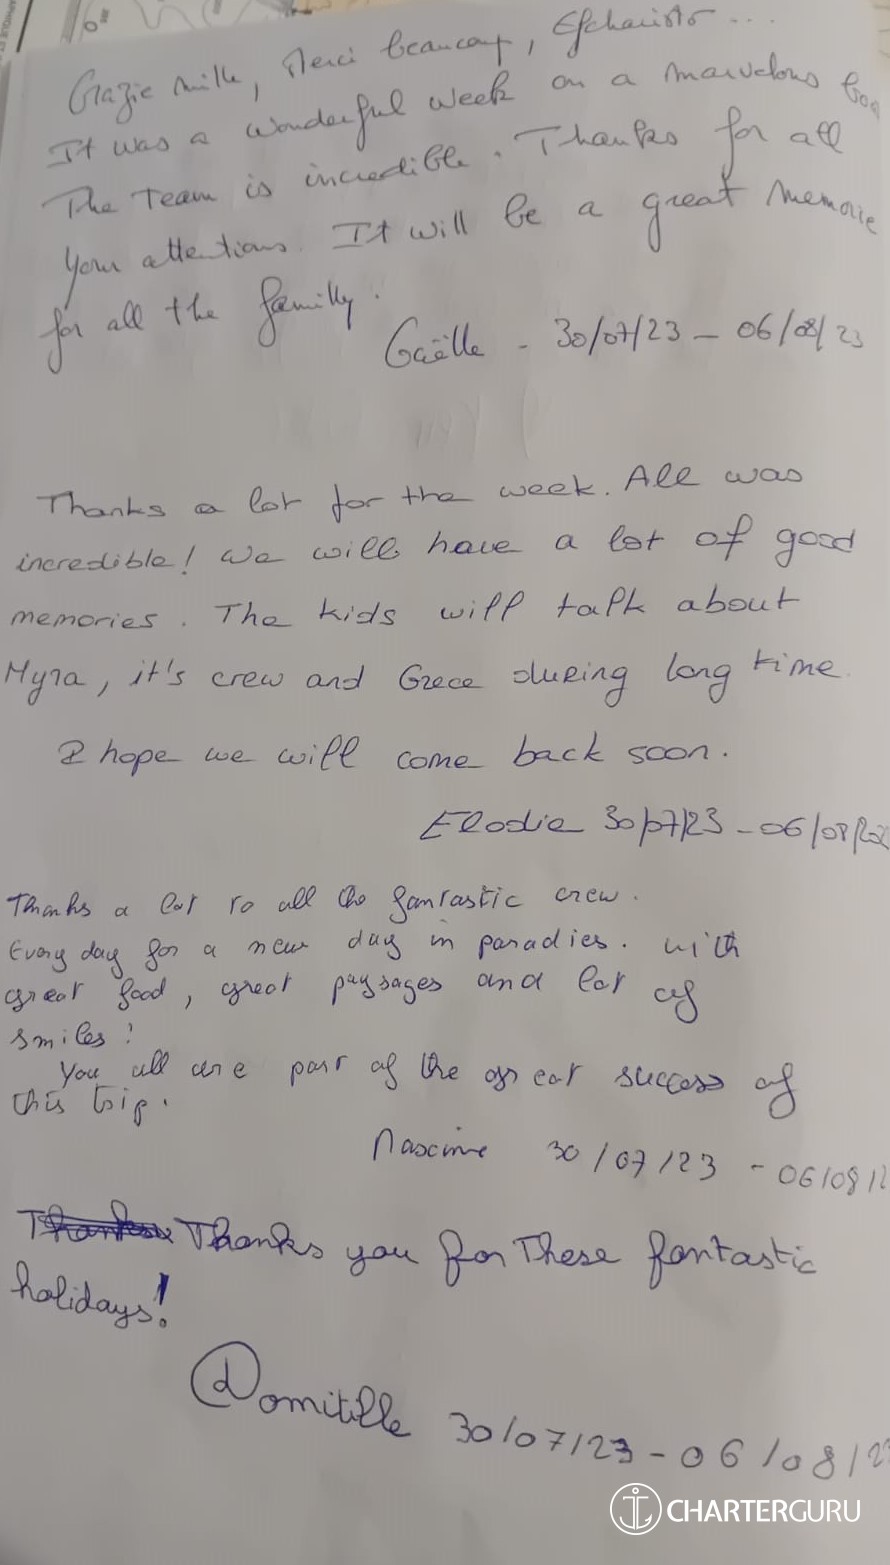 Grazie mille, Merci beaucoup, Efcharisto ...
It was a wonderful week on a marvelous boa
The Team is incredible. Thanks for all
your attentions. It will be a great memorie
for all the familly.
Gaëlle - 30/07/23 - 06/08/23
Thanks a lot for the week. All was
incredible! We will have a lot of good
memories. The kids will talk about
Myra, it's crew and Grece during long time.
I hope we will come back soon.
Elodie 30/07/23 - 06/08/202
Thanks a lot to all the fantastic crew.
Every day for a new day in paradies. with
great food, great paysages and lot of
smiles!
You all are part of the great success of
this trip.
Maxime 30/07/23 - 06/08/2
Thanks you for These fantastic
holidays!
Domitille 30/07/23 - 06/08/23
CHARTERGURU